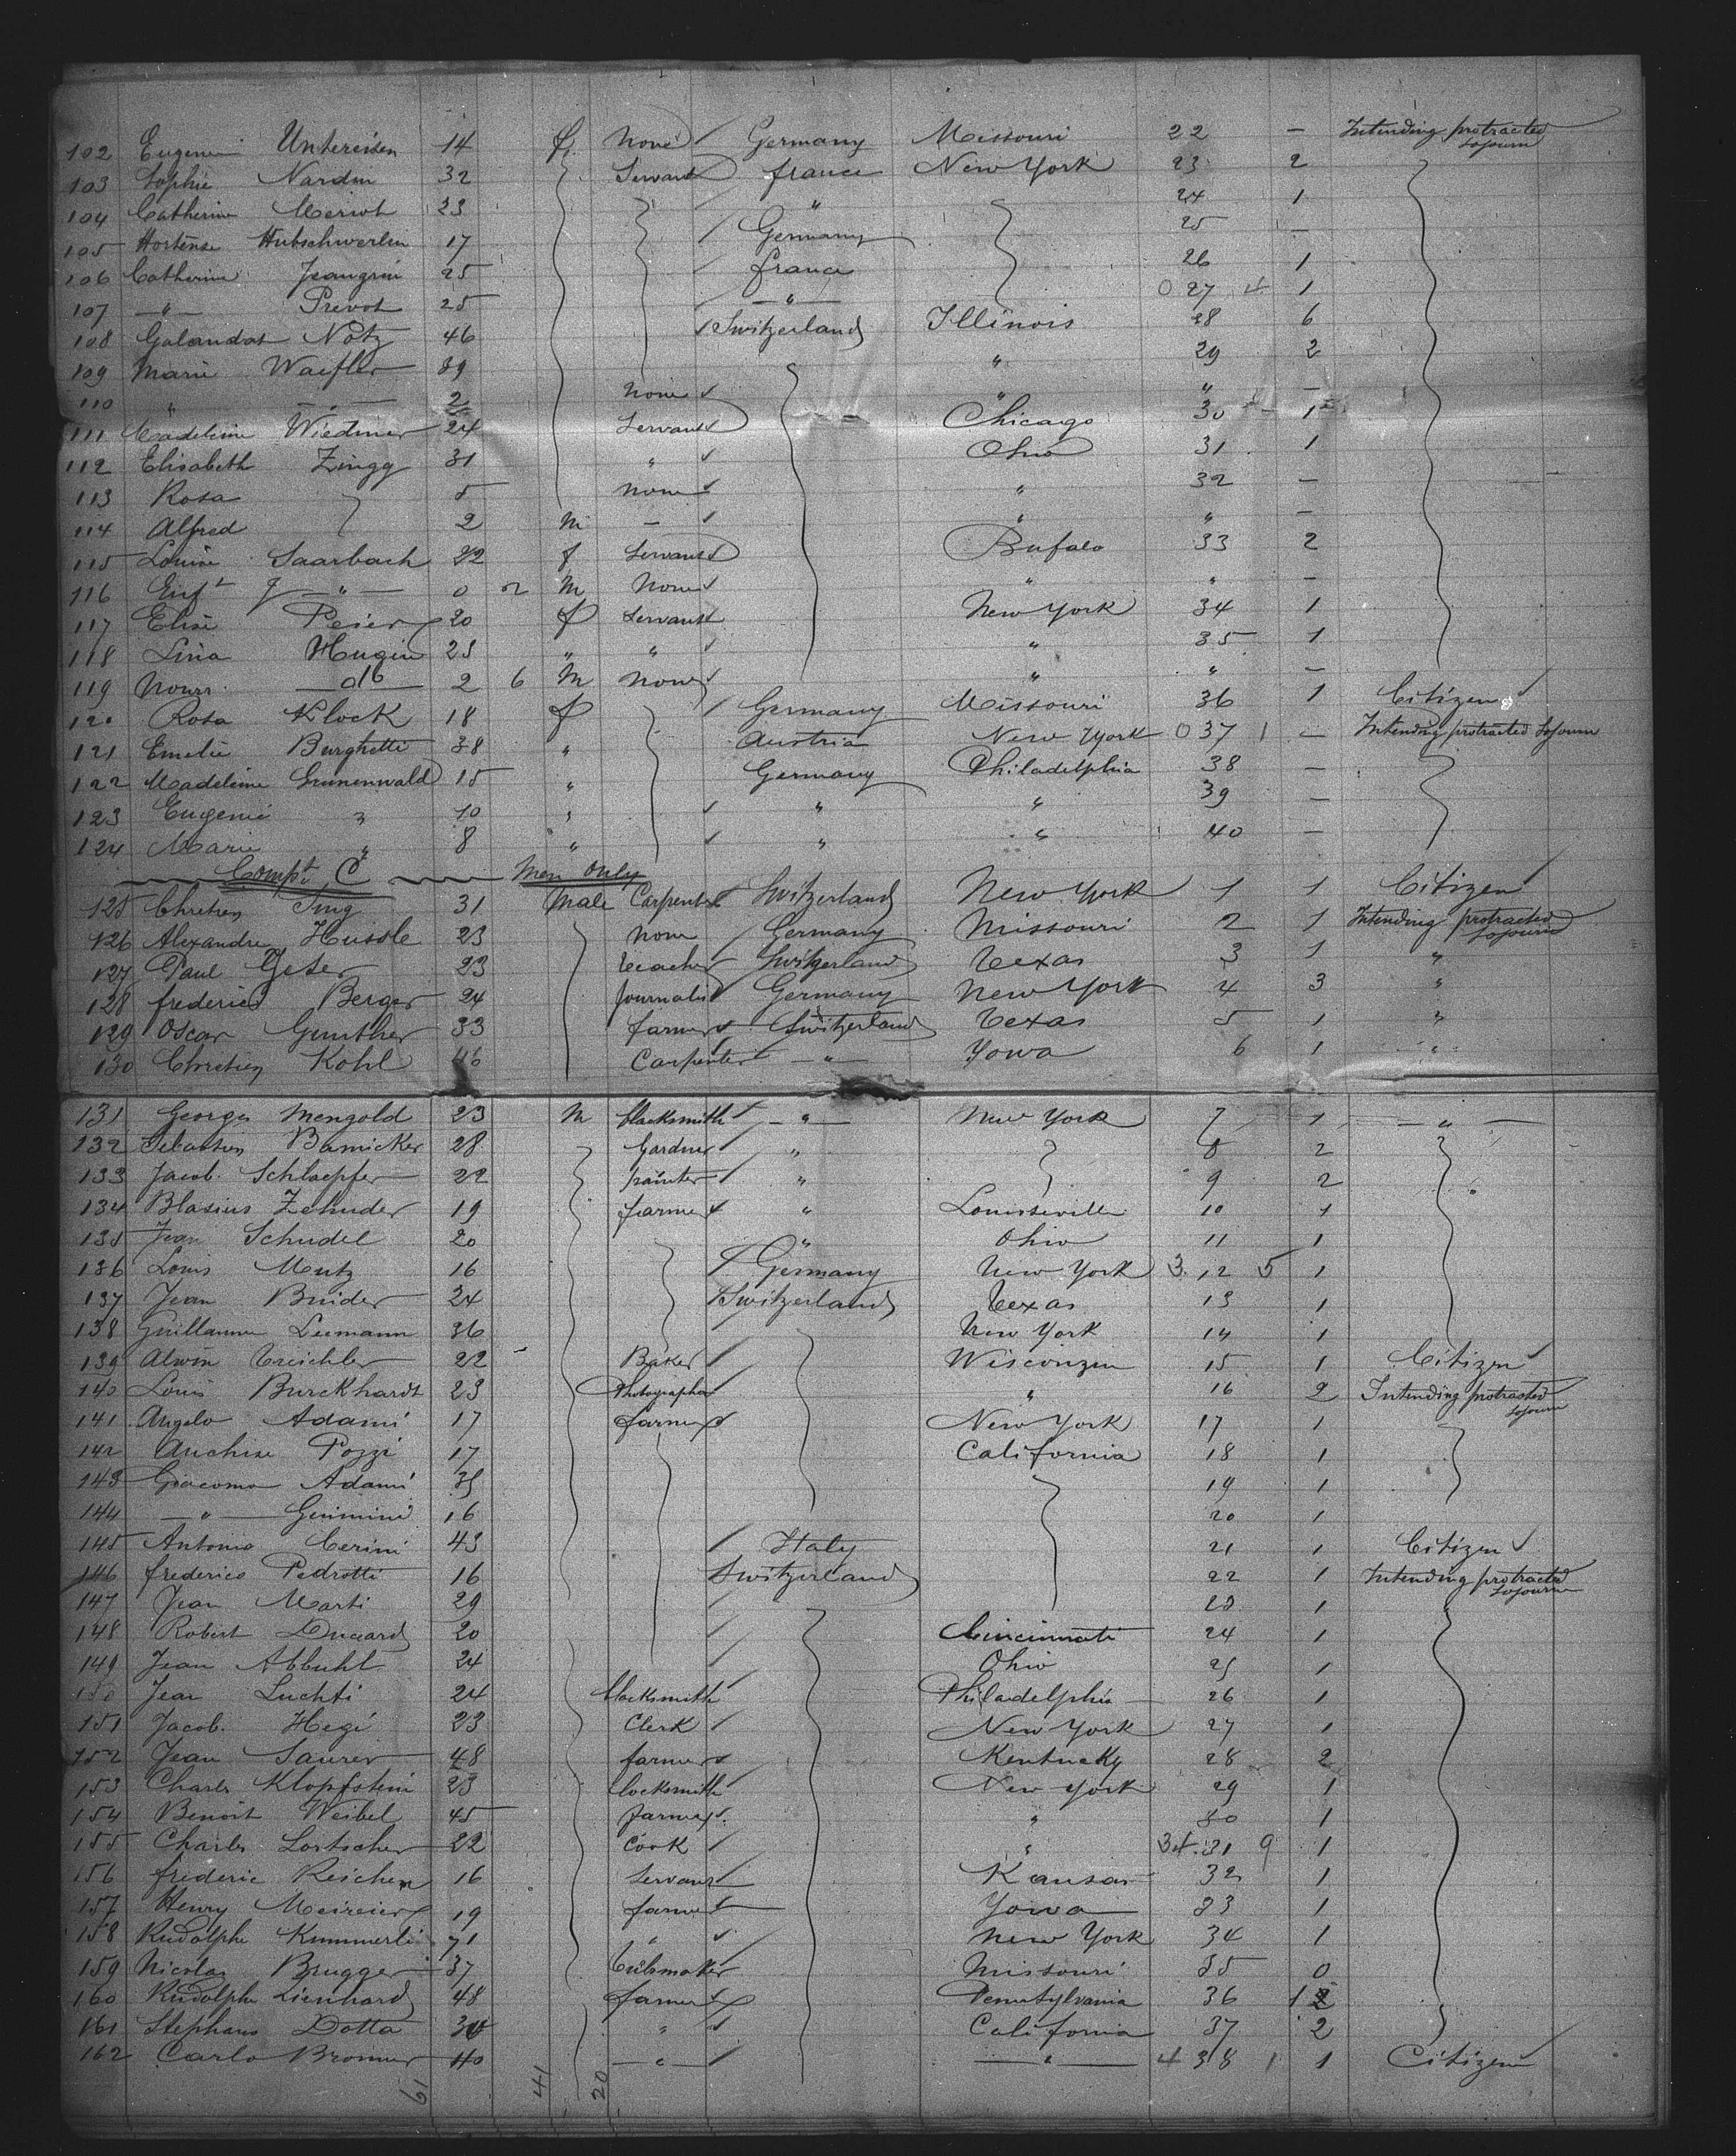 102 Eugenie Untereisen 14 f. None Germany Missouri 22 — Intending protracted sojourn
103 Sophie Nardin 32 Servant france New York 23 2
104 Catherine Meriot 23 " 24 1
105 Hortense Hubschwerlin 17 Germany 25 —
106 Catherine Jeangrin 25 france 26 1
107 — " — Prevot 25 — " — 0 27 4 1
108 Galandat Notz 46 Switzerland Illinois 28 6
109 Marie Waefler 39 " 29 2
110 " — " — 2 None " " —
111 Madeleine Wiedmer 24 Servant Chicago 30 1
112 Elisabeth Zingg 31 " Ohio 31 1
113 Rosa 5 none " 32 —
114 Alfred 2 M — " " —
115 Louise Saarbach 22 f Servant Bufalo 33 2
116 Enf t — " — 0 2 M None " " —
117 Elise Peier 20 f Servant New York 34 1
118 Lina Hugin 25 " " " 35 1
119 Nourr. — do — 2 6 M None " " —
120 Rosa Klock 18 f Germany Missouri 36 1 Citizen
121 Emelie Burghetti 38 " Austria New York 0 37 1 — Intending protracted Sojourn
122 Madeleine Grunenwald 15 " Germany Philadelphia 38 —
123 Eugenie " 10 " " " 39 —
124 Marie " 8 " " " 40 —
Compt. C Men only
125 Chretien 31 Male Carpenter Switzerland New York 1 1 Citizen
126 Alexandre 23 None Germany Missouri 2 1 Intending protracted sojourn
127 Paul Geser 23 teacher Switzerland Texas 3 1 "
128 frederic Berger 24 Journalist Germany New York 4 3 "
129 Oscar Gunther 33 farmer Switzerland Texas 5 1 "
130 Chretien Kohl 46 Carpenter — " — Yowa 6 1 "
131 Georges Mengold 23 M blacksmith — " — New York 7 1 — " —
132 Sebastien Bamicker 28 Gardner " 8 2
133 Jacob. Schlaepfer 22 painter " 9 2
134 Blasius Zehnder 19 farmer " Louisseville 10 1
135 Jean Schudel 20 " Ohio 11 1
136 Louis Mentz 16 Germany New York 3. 12 5 1
137 Jean Buider 24 Switzerland Texas 13 1
138 Guillaume Leemann 36 New York 14 1
139 Alwin Treichler 22 Baker Wisconzin 15 1 Citizen
140 Louis Burckhardt 23 Photographer " 16 2 Intending protracted sojourn
141 Angelo Adami 17 farmer New York 17 1
142 Anchise Pozzi 17 California 18 1
143 Giacomo Adami 35 19 1
144 — " — Genimini 16 20 1
145 Antonio Cerini 43 Italy 21 1 Citizen
146 frederico Pedrotti 16 Switzerland 22 1 Intending protracted sojourn
147 Jean Marti 29 23 1
148 Robert 20 Cincinnati 24 1
149 Jean Abbuhl 24 Ohio 25 1
150 Jean Luchti 24 blacksmith Philadelphia 26 1
151 Jacob. Hegi 23 Clerk New York 27 1
152 Jean Saurer 48 farmer Kentucky 28 2
153 Charles Klopfstein 23 locksmith New York 29 1
154 Benoit Weibel 45 farmer " 30 1
155 Charles Lortscher 22 Cook " 34. 31 9 1
156 frederic Reichen 16 Servant Kansas 32 1
157 Henry Meireier 19 farmer Yowa 33 1
158 Rudolphe Kummerli 71 " New York 34 1
159 Nicolas Brugger 37 Missouri 35 0
160 Rudolphe Lienhard 48 farmer Pennsylvania 36 1 2
161 Stephano Dotta 34 " California 37 2
162 Carlo Bronner 40 — " — — " — 4 38 1 1 Citizen
61 41 20